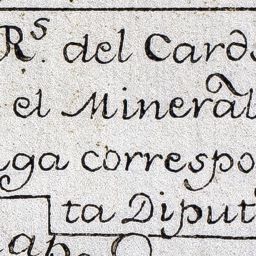 R.s del Card
el Mineral
ga correspo
ta Diput